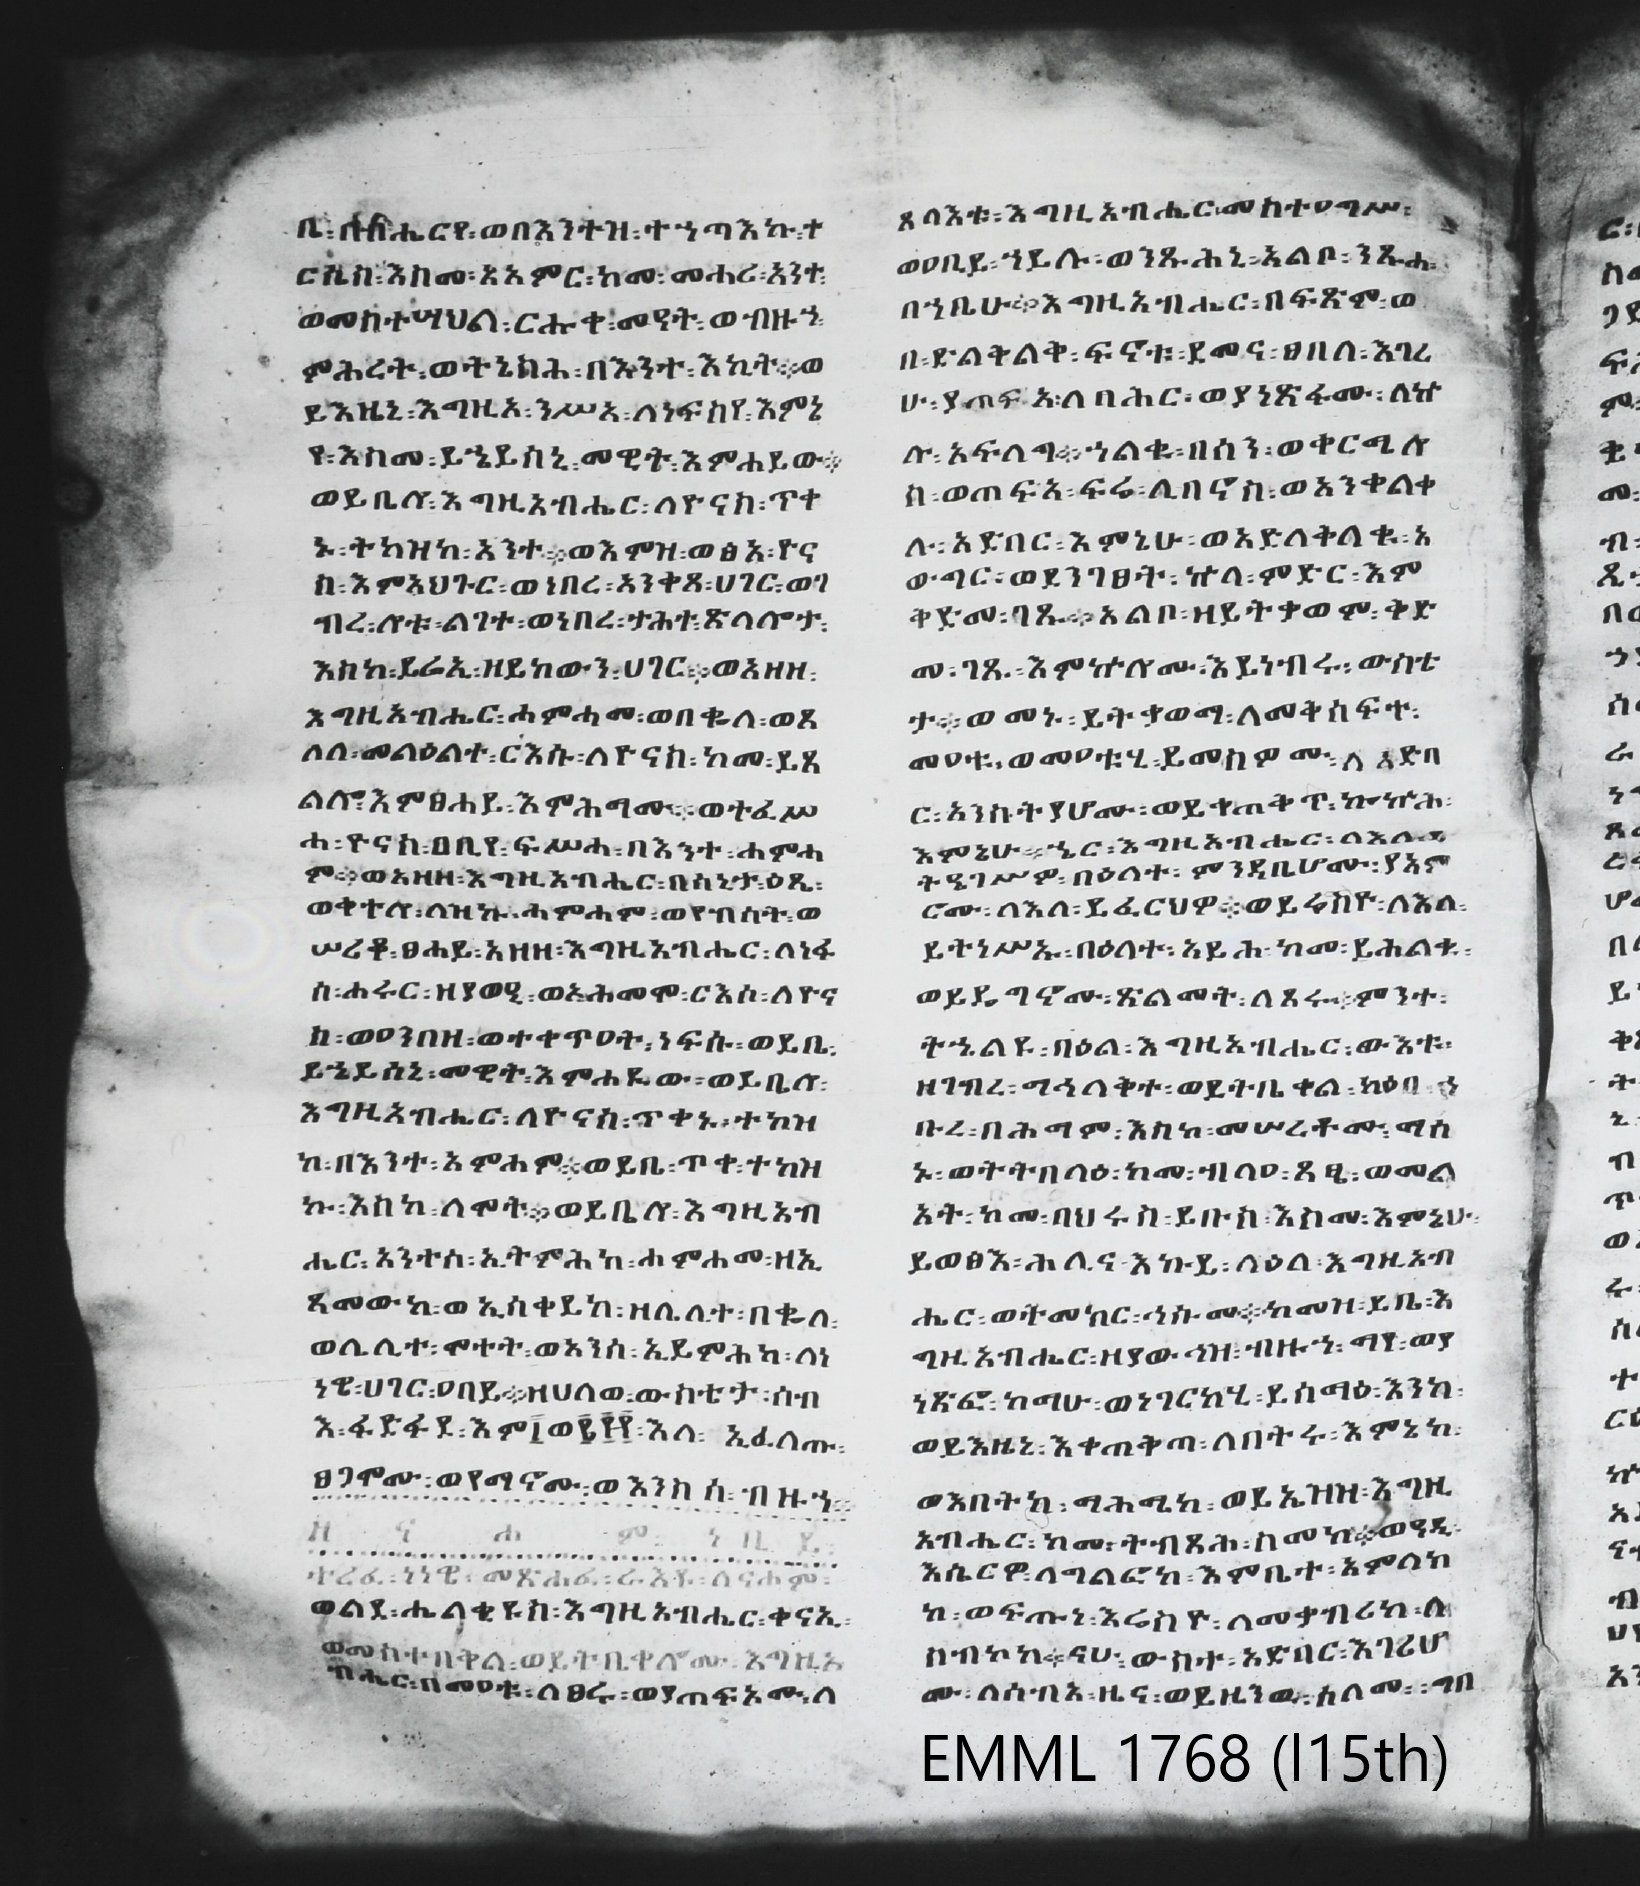 ቤ፡ ሀሀሔርየ፡ ወበእንተዝ፡ ተኀጣእኩ፡ ተ
ርሴስ፡ እስመ፡ አአምር፡ ከመ፡ መሐሪ፡ አንተ፡
ወመስተሣህል፡ ርሑቀ፡ መዓት፡ ወብዙኀ፡
ምሕረት፡ ወትኔስሕ፡ በእንተ፡ እኪት፨ ወ
ይእዜኒ፡ እግዚአ፡ ንሥአ፡ ለነፍስየ፡ እምኔ
የ፡ እስመ፡ ይኄይሰኒ፡ መዊት፡ እምሐይው፨
ወይቤሎ፡ እግዚአብሔር፡ ለዮናስ፡ ጥቀ
ኑ፡ ትካዝከ፡ አንተ፨ ወእምዝ፡ ወፅአ፡ ዮና
ስ፡ እምአህጉር፡ ወነበረ፡ አንቀጸ፡ ሀገር፡ ወገ
ብረ፡ ሎቱ፡ ልገተ፡ ወነበረ፡ ታሕተ፡ ጽላሎታ፡
እስከ፡ ይሬኢ፡ ዘይከውን፡ ሀገር፨ ወአዘዘ፡
እግዚአብሔር፡ ሐምሐመ፡ ወበቈለ፡ ወጸ
ለለ፡ መልዕልተ፡ ርእሱ፡ ለዮናስ፡ ከመ፡ ይጸ
ልሎ፡ እምፀሐይ፡ እምሕማሙ፨ ወተፈሥ
ሐ፡ ዮናስ፡ ዐቢየ፡ ፍሥሐ፡ በእንተ፡ ሐምሐ
ም፨ ወአዘዘ፡ እግዚአብሔር፡ በሳኒታ፡ ዕፄ፡
ወቀተሎ፡ ለዝኩ፡ ሐምሐም፡ ወየብሰት፡ ወ
ሠረቆ፡ ፀሐይ፡ አዘዘ፡ እግዚአብሔር፡ ለነፋ
ስ፡ ሐሩር፡ ዘያወዒ፡ ወአሕመሞ፡ ርእሰ፡ ለዮና
ስ፡ ወዐንበዘ፡ ወተቀጥዐት፡ ነፍሱ፡ ወይቤ፡
ይኄይሰኒ፡ መዊት፡ እምሐዪው፡ ወይቤሎ፡
እግዚአብሔር፡ ለዮናስ፡ ጥቀኑ፡ ተከዝ
ከ፡ በእንተ፡ ሐምሐም፨ ወይቤ፡ ጥቀ፡ ተከዝ
ኩ፡ እስከ፡ ለሞት፨ ወይቤሎ፡ እግዚአብ
ሔር፡ አንተሰ፡ ኢትምሕክ፡ ሐምሐመ፡ ዘኢ
ጻመውከ፡ ወኢሰቀይከ፡ ዘሌሊተ፡ በቈለ፡
ወሌሊተ፡ ሞተት፡ ወአንሰ፡ ኢይምሕክ፡ ለነ
ነዌ፡ ሀገር፡ ዐበይ፨ ዘሀለወ፡ ውስቴታ፡ ሰብ
እ፡ ፋድፋደ፡ እም፲ወ፪፻፻፡ እለ፡ ኢፈለጡ፡
ፀጋሞሙ፡ ወየማኖሙ፡ ወእንስሳ፡ ብዙኀ፡
ዘ ና ሐ ም ነ ቢ ይ
ተረፈ፡ ነነዌ፡ መጽሐፈ፡ ራእዩ፡ ለናሐም፡
ወልደ፡ ሔልቂዩስ፡ እግዚአብሔር፡ ቀናኢ፡
ወመስተበቅል፡ ወይትቤቀሎሙ፡ እግዚአ
ብሔር፡ በመዐቱ፡ ለፀሩ፡ ወያጠፍአሙ፡ ለ
ጸላእቱ፡ እግዚአብሔር፡ መስተዐግሥ፡
ወዐቢይ፡ ኀይሉ፡ ወንጹሕኒ፡ አልቦ፡ ንጹሐ፡
በኀቤሁ፨ እግዚአብሔር፡ በፍጽም፡ ወ
በ፡ ድልቅልቅ፡ ፍኖቱ፡ ደመና፡ ፀበለ፡ እገሪ
ሁ፡ ያጠፍአ፡ ለባሕር፡ ወያነጽፋሙ፡ ለኵ
ሉ፡ አፍላግ፨ ኀልቁ፡ በሰን፡ ወቀርሜሎ
ስ፡ ወጠፍአ፡ ፍሬ፡ ሊበኖስ፡ ወአንቀልቀ
ሉ፡ አድበር፡ እምኔሁ፡ ወአድለቅለቁ፡ አ
ውግር፡ ወደንገፀት፡ ኵላ፡ ምድር፡ እም
ቅድመ፡ ገጹ፨ አልቦ፡ ዘይትቃወም፡ ቅድ
መ፡ ገጹ፡ እምኵሎሙ፡ እይነብሩ፡ ውስቴ
ታ፨ ወመኑ፡ ይትቃወማ፡ ለመቅሰፍተ፡
መዐቱ፡ ወመዐቱሂ፡ ይመስዎሙ፡ ለአድባ
ር፡ አንኩትያሆሙ፡ ወይቀጠቅጥ፡ ኰኵሕ፡
እምኔሁ፨ ኄር፡ እግዚአብሔር፡ ለእለ
ትዔገሥዎ፡ በዕለተ፡ ምንዳቤሆሙ፡ ያአም
ሮሙ፡ ለእለ፡ ይፈርህዎ፨ ወይሬስዮ፡ ለእለ፡
ይትነሥኡ፡ በዕለተ፡ አይሕ፡ ከመ፡ ይሕልቁ፡
ወይዴግኖሙ፡ ጽልመት፡ ለጸሩ፨ ምንተ፡
ትኄልዩ፡ በዕለ፡ እግዚአብሔር፡ ውእቱ፡
ዘገብረ፡ ማኅለቅተ፡ ወይትቤቀል፡ ክዕበ፡ ኀ
ቡረ፡ በሕማም፡ እስከ፡ መሠረቶሙ፡ ማሰ
ኑ፡ ወትትበላዕ፡ ከመ፡ ብላዐ፡ ጸፄ፡ ወመል
አት፡ ከመ፡ በህሩስ፡ ይቡስ፡ እስመ፡ እምኔሁ፡
ይወፅእ፡ ሕሊና፡ እኩይ፡ ላዕለ፡ እግዚአብ
ሔር፡ ወትመክር፡ ኅሱመ፨ ከመዝ፡ ይቤ፡ እ
ግዚአብሔር፡ ዘያውኅዝ፡ ብዙኀ፡ ማየ፡ ወያ
ነጽፎ፡ ከማሁ፡ ወነገርከሂ፡ ይሰማዕ፡ እንከ፡
ወይእዜኒ፡ እቀጠቅጣ፡ ለበትሩ፡ እምኔከ፡
ወእበትክ፡ ማሕሜከ፡ ወይኤዝዘ፡ እግዚ
አብሔር፡ ከመ፡ ትብጻሕ፡ ስመከ፨ ወዓዲ፡
እሴርዎ፡ ለግልፎከ፡ እምቤተ፡ አምላክ
ከ፡ ወፍጡነ፡ እሬስዮ፡ ለመቃብሪከ፡ ለ
ከብኮከ፨ ናሁ፡ ውስተ፡ አድበር፡ እገሪሆ
ሙ፡ ለሰብአ፡ ዜና፡ ወይዜንወ፡ ሰላመ፡ ግበ
EMML 1768 (l15th)